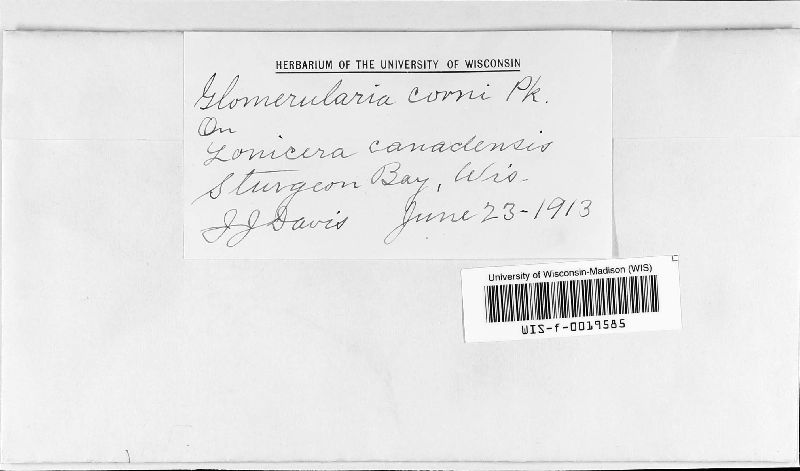 HERBARIUM OF THE UNIVERSITY OF WISCONSIN
Glomerularia corni Pk.
On
Lonicera canadensis
Sturgeon Bay, Wis.
J J Davis June 23-1913
University of Wisconsin-Madison (WIS)
WIS-f-0019585